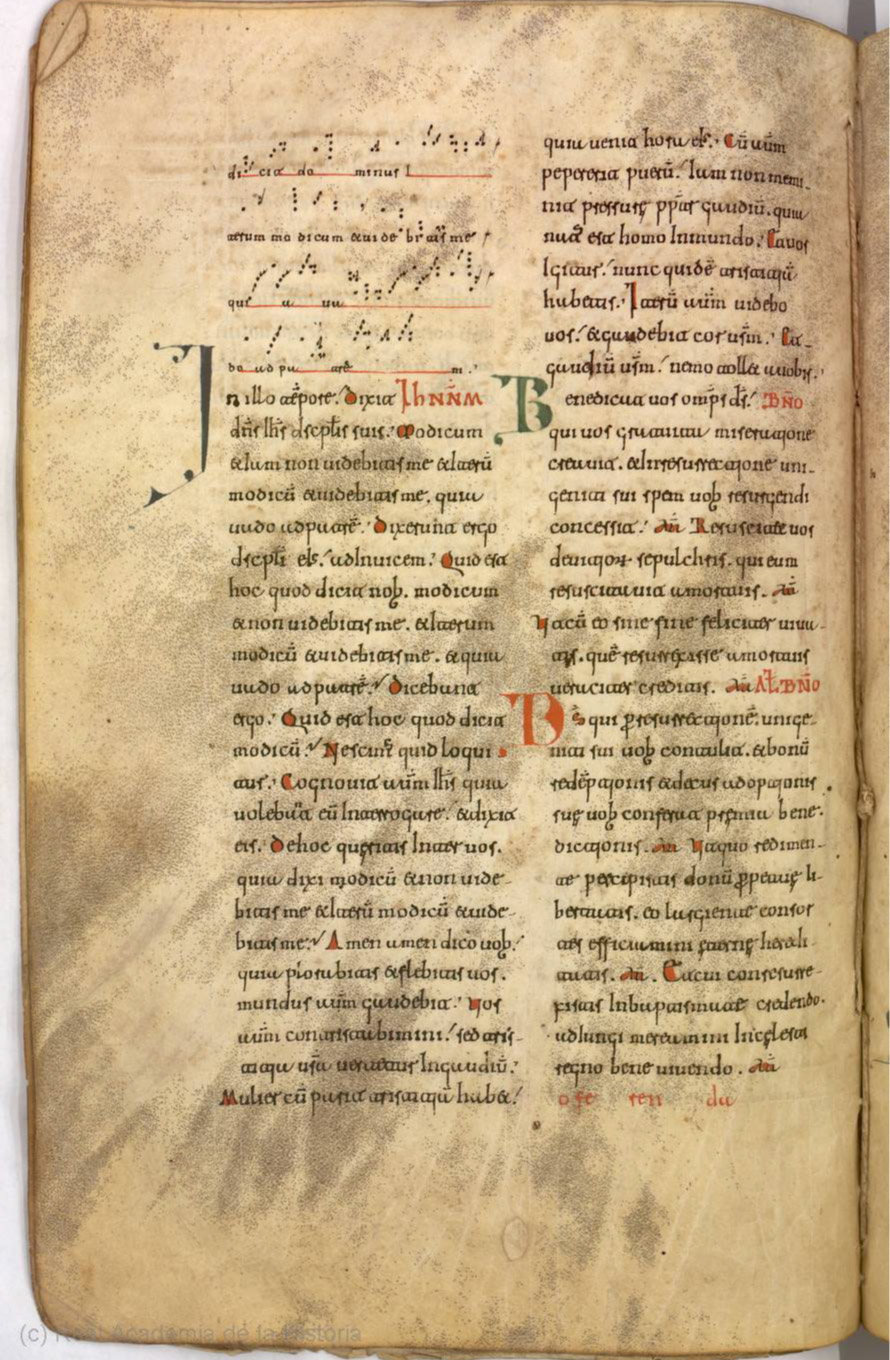 di cit do minus I
terum mo dicum &ui de bi tis me
qui a ua
do ad pa trē m.
In illo tēpore. Dixit IhNNM
dn̄s ih̄s discpl̄is suis. Modicum
&iam non uidebitis me &iterū
modicū &uidebitis me. quia
uado adpatrē. Dixerunt ergo
discpl̄i ei᷒. adInuicem. Quid est
hoc quod dicit nob. modicum
&non uidebitis me. &iterum
modicū &uidebitis me. &quia
uado adpatrē. Dicebant
ergo. Quid est hoc quod dicit
modicū. Nescim᷒ quid loqui
tur. Cognouit autm̄ ih̄s quia
uolebāt eū Interrogare. &dixit
eis. Dehoc queritis Inter uos.
quia dixi modicū &non uide-
bitis me &iterū modicū &uide-
bitis me. Amen amen dico uob.
quia plorabitis &flebitis uos.
mundus autm̄ gaudebit. Uos
autm̄ contristabimini. sed tris-
titia ur̄a uertetur Ingaudiū.
Mulier cū parit tristitiā hab&.
quia uenit hora ei᷒. Cū autm̄
pepererit puerū. Iam non memi-
nit pressure pp̄ter gaudiū. quia
nat᷒ est homo Inmundo. Eauos
Igitur. nunc quidē tristitiā
habetis. Iterū autm̄ uidebo
uos. &gaudebit cor ur̄m. Ea-
gaudiū ur̄m. nemo toll& auobis.
Benedicat uos omps ds. BNO
qui uos gratuita miseratione
creauit. &Inresurrectione uni-
geniti sui spem uob resurgendi
concessit. Am̄ Resuscitet uos
deuitiorum sepulchris. qui eum
resuscitauit amortuis. Am̄
Utcū eo sine fine feliciter uiua-
tis. quē resurrexisse amortuis
ueraciter creditis. Am̄ ALBNO
Ds qui p resurrectionē. unige-
niti sui uob contulit. &bonū
redēptionis &decus adoptionis
sue uob conferat premia bene-
dictionis. Am̄ Utquo redimen-
te percipistis donū ppetue li-
bertatis. eo largiente consor
tes efficiamini eterne heredi-
tatis. Am̄. Etcui consurre-
xistis Inbaptismate credendo.
adIungi mereamini Incelesti
regno bene uiuendo. Am̄
o fe ren da